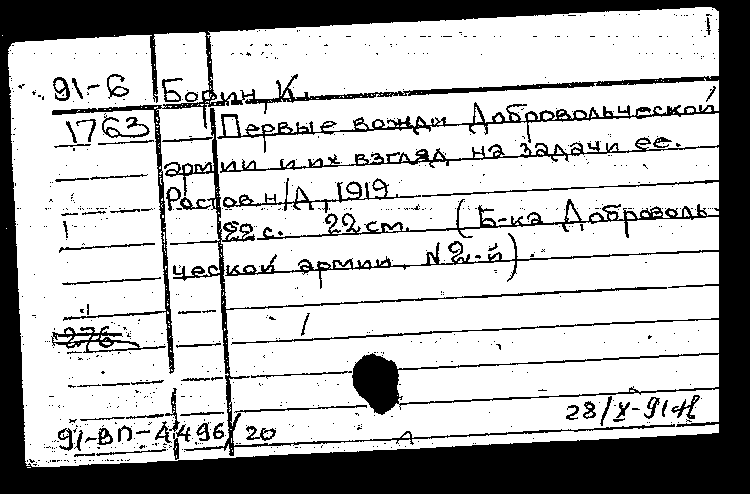 91-6 Борин, К.
1763 Первые вожди Добровольческой
армии и их взгляд на задачи ее.
Ростов н/Д, 1919.
22 с. 22 см. (Б-ка Доброволь-
ческой армии. N 2-й).
276
91-ВП-4496/20
28/X-91